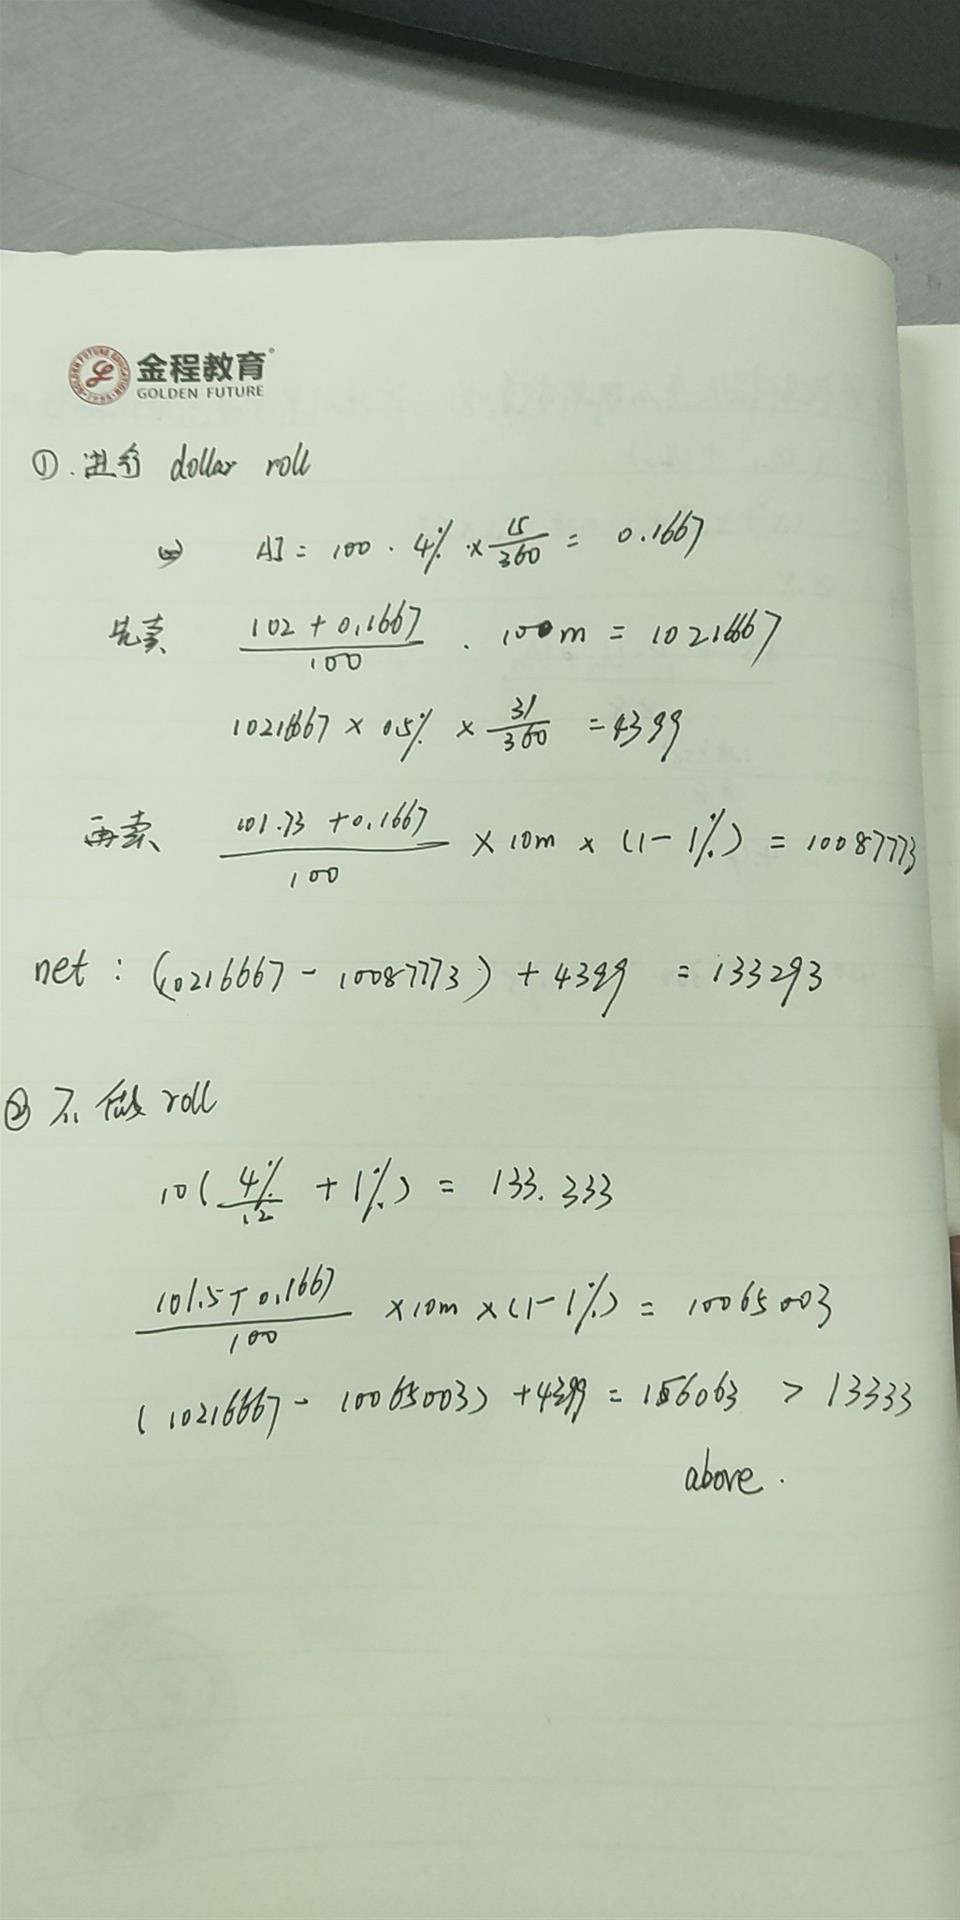 金程教育
GOLDEN FUTURE
①. 进行 dollar roll
AI = 100 · 4% × 15/360 = 0.1667
先卖 (102 + 0.1667)/100 · 100m = 10216667
10216667 × 0.5% × 31/360 = 4399
再卖 (101.73 + 0.1667)/100 × 10m × (1 - 1%) = 10087773
net : (10216667 - 10087773) + 4399 = 133293
② 不做 roll
10 ( 4%/12 + 1% ) = 133.333
(101.5 + 0.1667)/100 × 10m × (1 - 1%) = 10065003
( 10216667 - 10065003 ) + 4399 = 156063 > 13333
above .